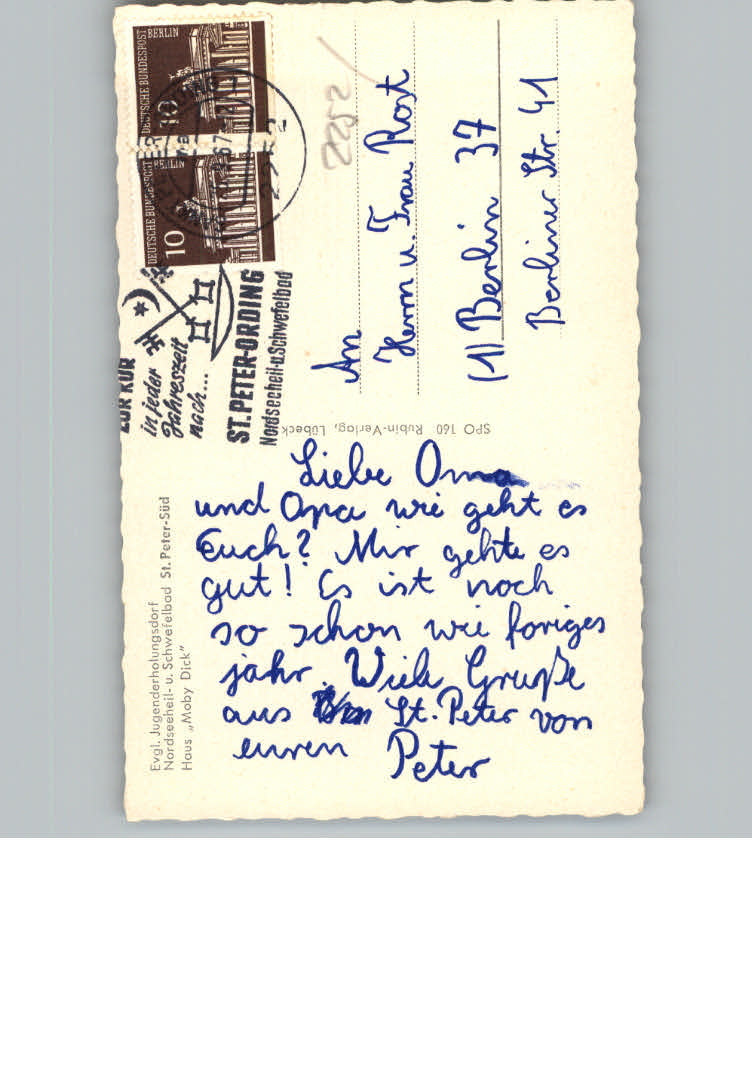 Liebe Oma
und Opa wie geht es
Euch? Mir gehte es
gut! Es ist noch
so schon wie foriges
jahr. Viele Gruße
aus St. Peter von
euren Peter
Evgl. Jugenderholungsdorf
Nordseeheil- u. Schwefelbad St. Peter-Süd
Haus „Moby Dick"
SPO 160 Rubin-Verlag, Lübeck
An
Herrn u. Frau Rost
(1) Berlin 37
Berliner Str. 41
2252
DEUTSCHE BUNDESPOST
BERLIN
10
DEUTSCHE BUNDESPOST
BERLIN
10
ZUR KUR
in jeder
Jahreszeit
nach...
ST. PETER-ORDING
Nordseeheil-u.Schwefelbad